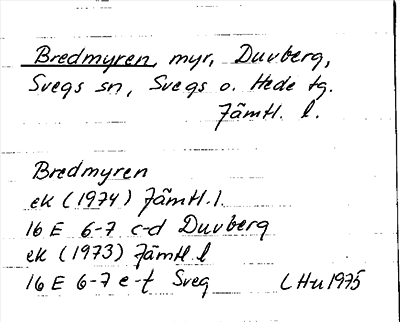 Bredmyren, myr, Duvberg,
Svegs sn, Svegs o. Hede tg.
Jämtl. l.
Bredmyren
ek (1974) Jämtl. l.
16 E 6-7 c-d Duvberg
ek (1973) Jämtl l
16 E 6-7 e-f Sveg LHu 1975